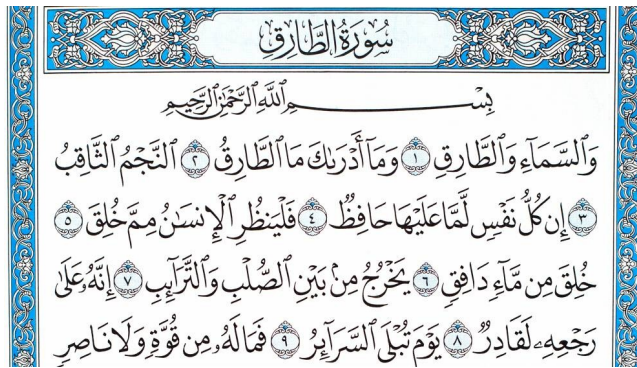 سُورَةُ الطَّارِقِ
بِسْمِ اللَّهِ الرَّحْمَٰنِ الرَّحِيمِ
وَالسَّمَاءِ وَالطَّارِقِ ١ وَمَا أَدْرَىٰكَ مَا الطَّارِقُ ٢ النَّجْمُ الثَّاقِبُ
٣ إِن كُلُّ نَفْسٍ لَّمَّا عَلَيْهَا حَافِظٌ ٤ فَلْيَنظُرِ الْإِنسَٰنُ مِمَّ خُلِقَ ٥
خُلِقَ مِن مَّاءٍ دَافِقٍ ٦ يَخْرُجُ مِنۢ بَيْنِ الصُّلْبِ وَالتَّرَائِبِ ٧ إِنَّهُۥ عَلَىٰ
رَجْعِهِۦ لَقَادِرٌ ٨ يَوْمَ تُبْلَى السَّرَائِرُ ٩ فَمَا لَهُۥ مِن قُوَّةٍ وَلَا نَاصِرٍ